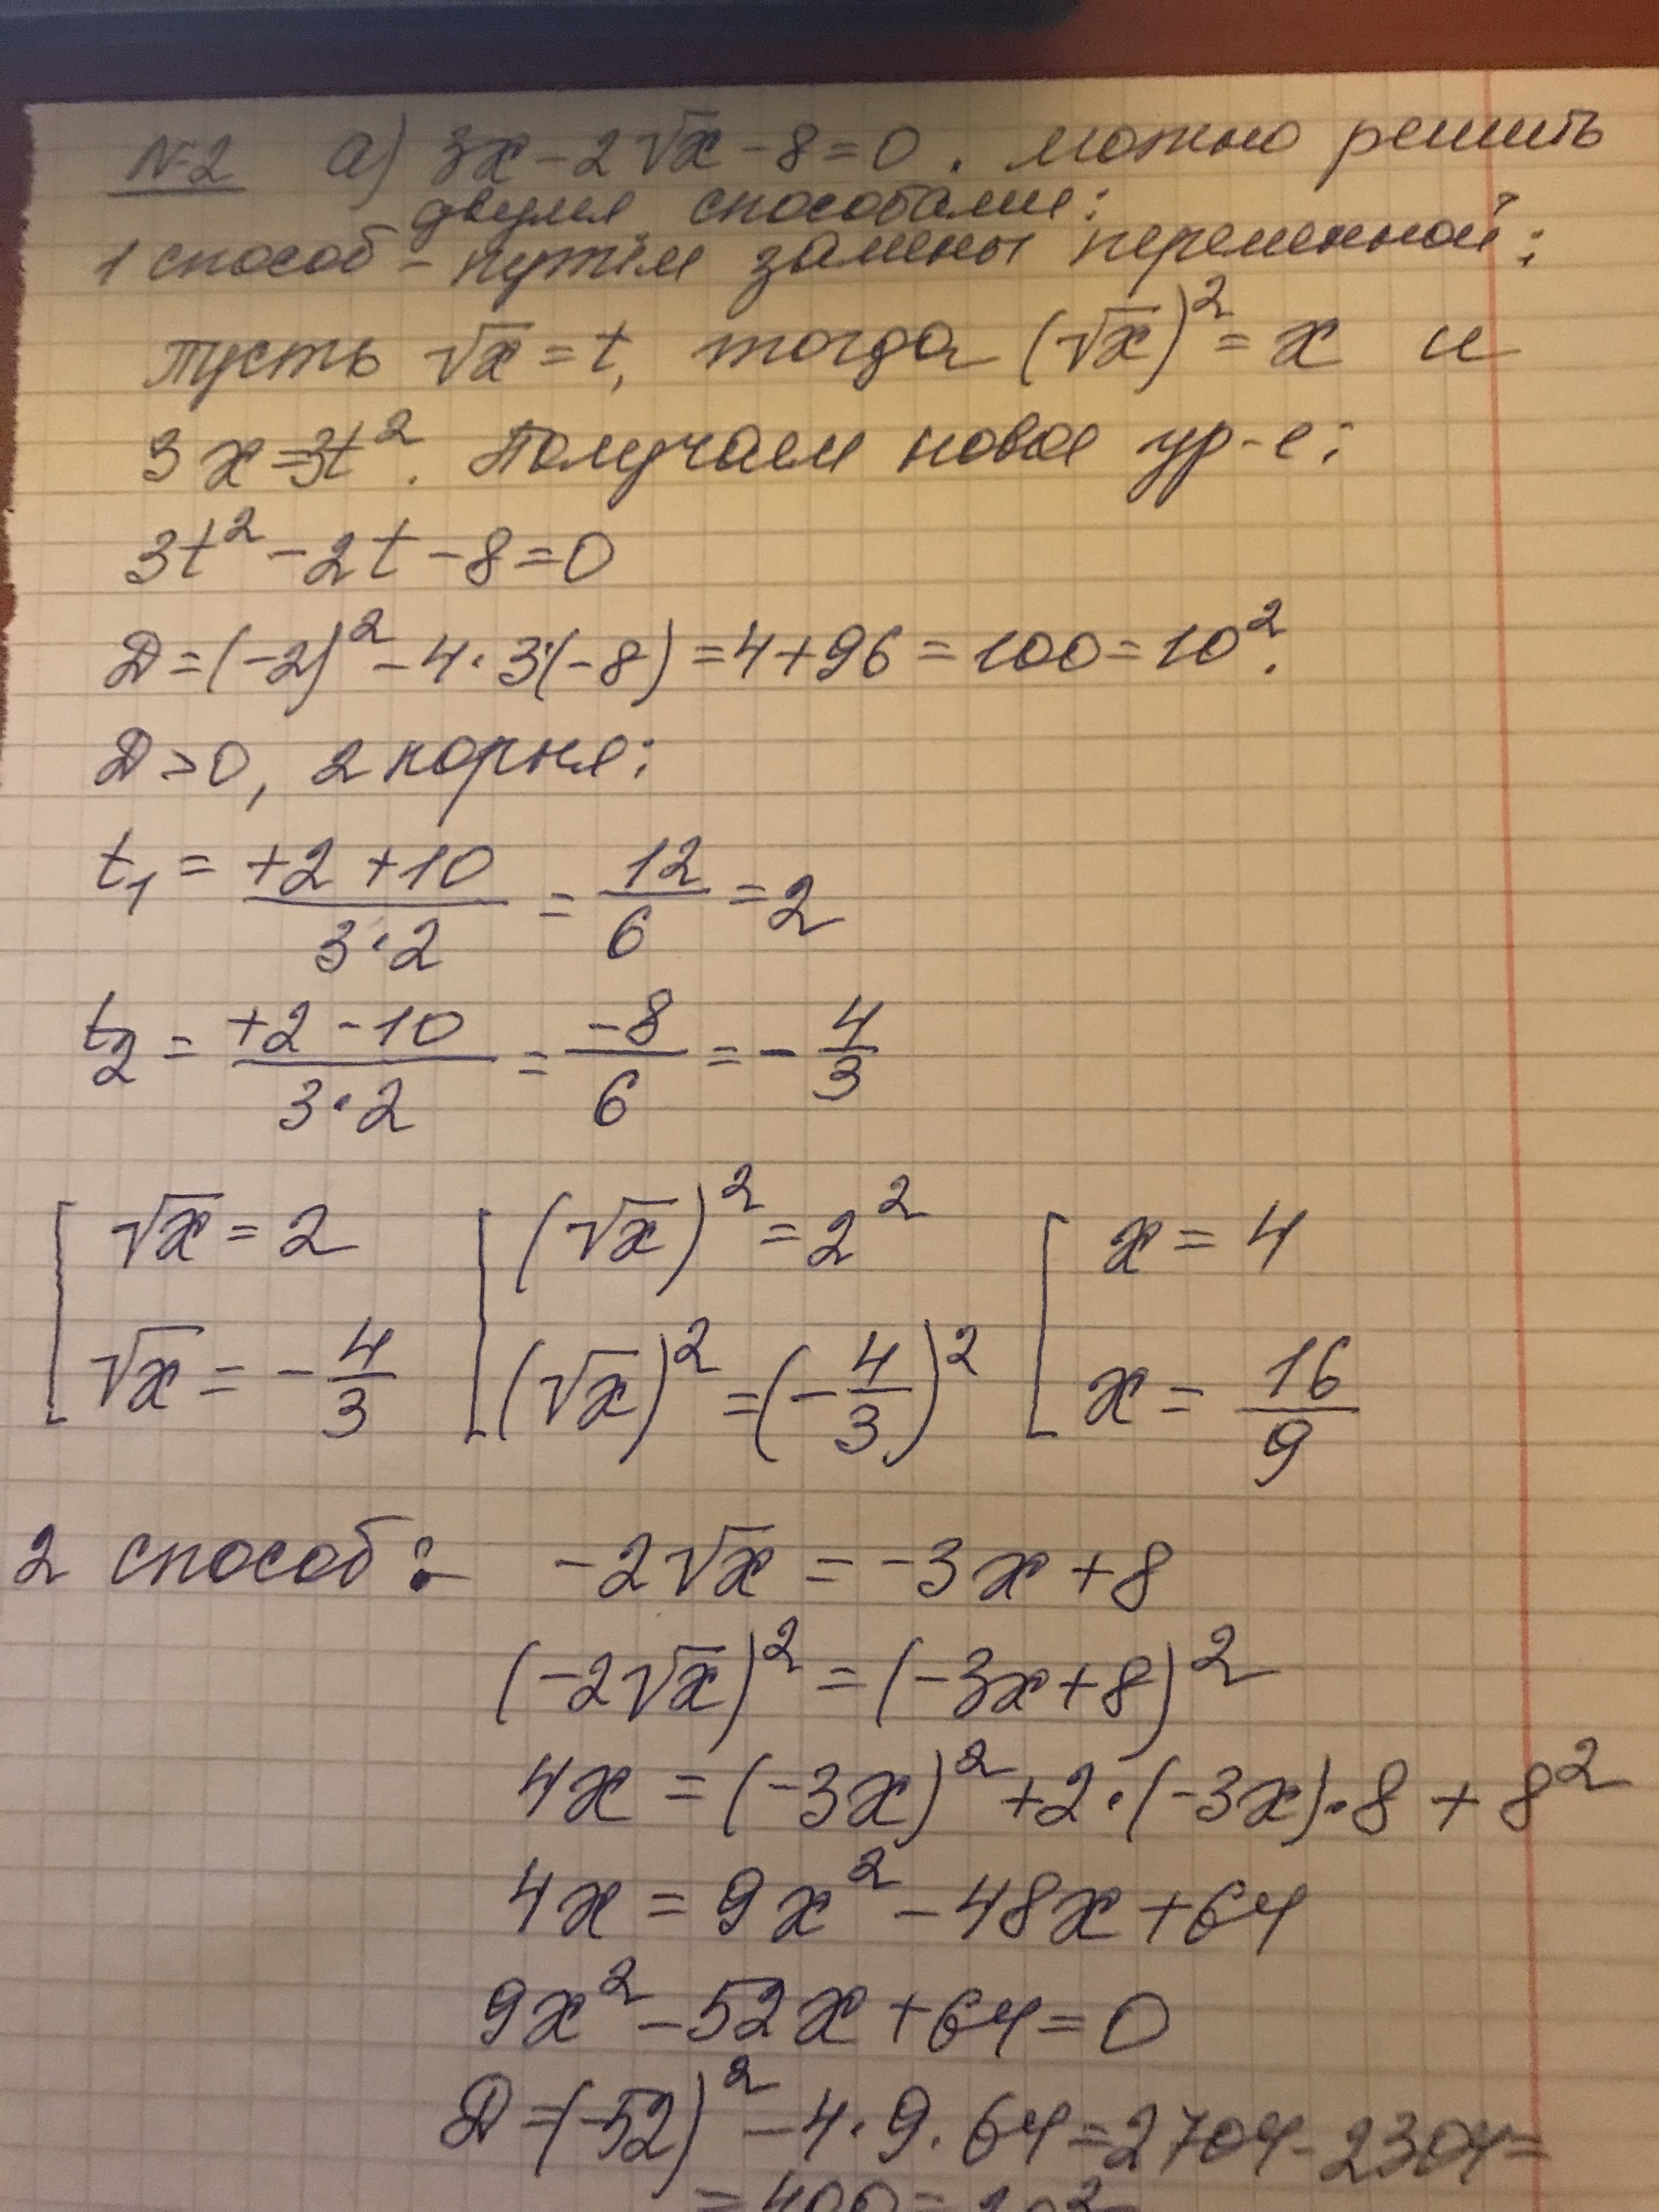 №2 а) 3x - 2√x - 8 = 0. можно решить
двумя способами:
1 способ - путём замены переменной:
пусть √x = t, тогда (√x)² = x и
3x = 3t². Получаем новое ур-е:
3t² - 2t - 8 = 0
D = (-2)² - 4·3·(-8) = 4 + 96 = 100 = 10².
D > 0, 2 корня:
t₁ = (+2 + 10)/(3·2) = 12/6 = 2
t₂ = (+2 - 10)/(3·2) = -8/6 = -4/3
[ √x = 2 [ (√x)² = 2² [ x = 4
[ √x = -4/3 [ (√x)² = (-4/3)² [ x = 16/9
2 способ: -2√x = -3x + 8
(-2√x)² = (-3x + 8)²
4x = (-3x)² + 2·(-3x)·8 + 8²
4x = 9x² - 48x + 64
9x² - 52x + 64 = 0
D = (-52)² - 4·9·64 = 2704 - 2304 =
= 400 = 20²